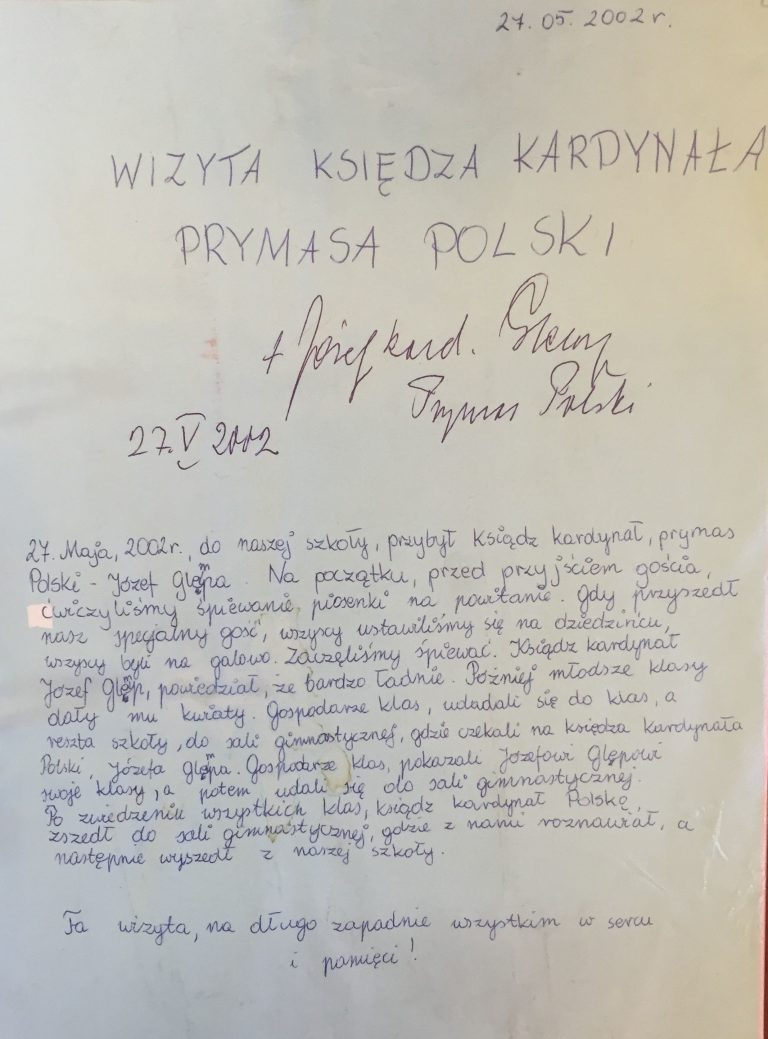 27.05.2002r.
WIZYTA KSIĘDZA KARDYNAŁA
PRYMASA POLSKI
+ Józef kard. Glemp
Prymas Polski
27.V 2002
27. Maja, 2002r., do naszej szkoły, przybył Ksiądz kardynał, prymas
Polski - Józef Glęmpa. Na początku, przed przyjściem gościa,
ćwiczyliśmy śpiewanie piosenki na powitanie. Gdy przyszedł
nasz specjalny gość, wszyscy ustawiliśmy się na dziedzińcu,
wszyscy byli na galowo. Zaczęliśmy śpiewać. Ksiądz kardynał
Józef Glęmp, powiedział, że bardzo ładnie. Później młodsze klasy
dały mu kwiaty. Gospodarze klas, udadali się do klas, a
reszta szkoły, do sali gimnastycznej, gdzie czekali na księdza Kardynała
Polski, Józefa Glęmpa. Gospodarze klas, pokazali Józefowi Glępowi
swoje klasy, a potem udali się do sali gimnastycznej.
Po zwiedzeniu wszystkich klas, ksiądz kardynał Polskę,
zszedł do sali gimnastycznej, gdzie z nami rozmawiał, a
następnie wyszedł z naszej szkoły.
Ta wizyta, na długo zapadnie wszystkim w sercu
i pamięci!